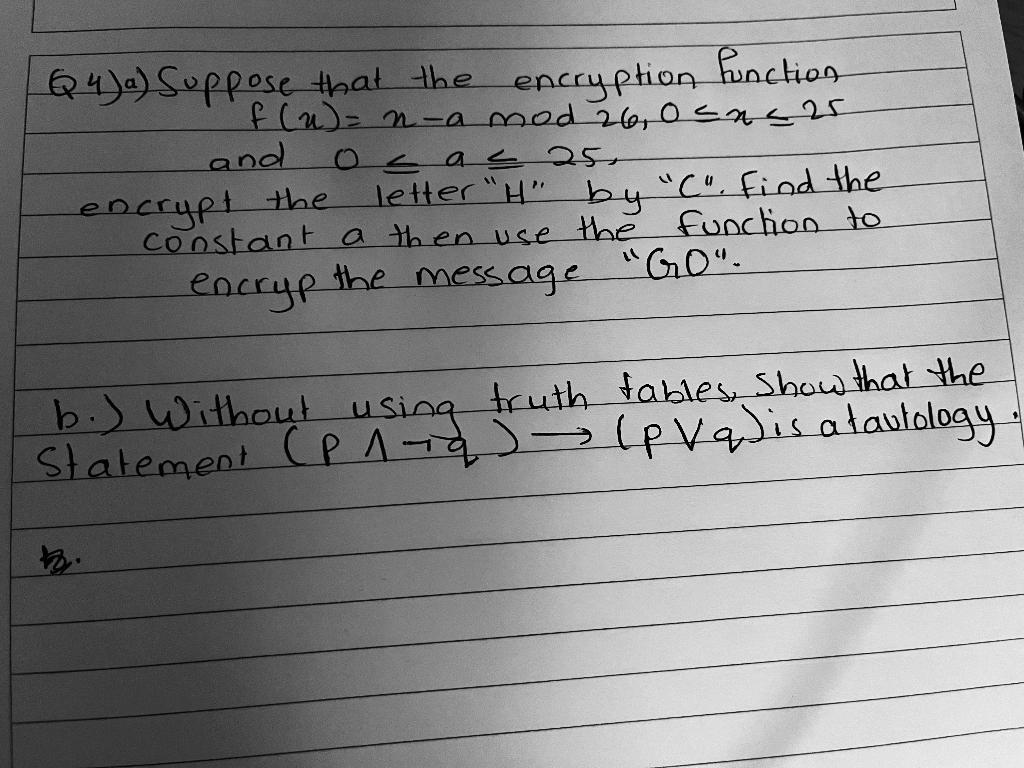 Q4)a) Suppose that the encryption function
f(x) = x-a mod 26, 0 ≤ x ≤ 25
and 0 ≤ a ≤ 25,
encrypt the letter "H" by "C". Find the
constant a then use the function to
encryp the message "GO".
b.) Without using truth tables, show that the
Statement (p ∧ ¬q) → (p ∨ q) is a tautology.